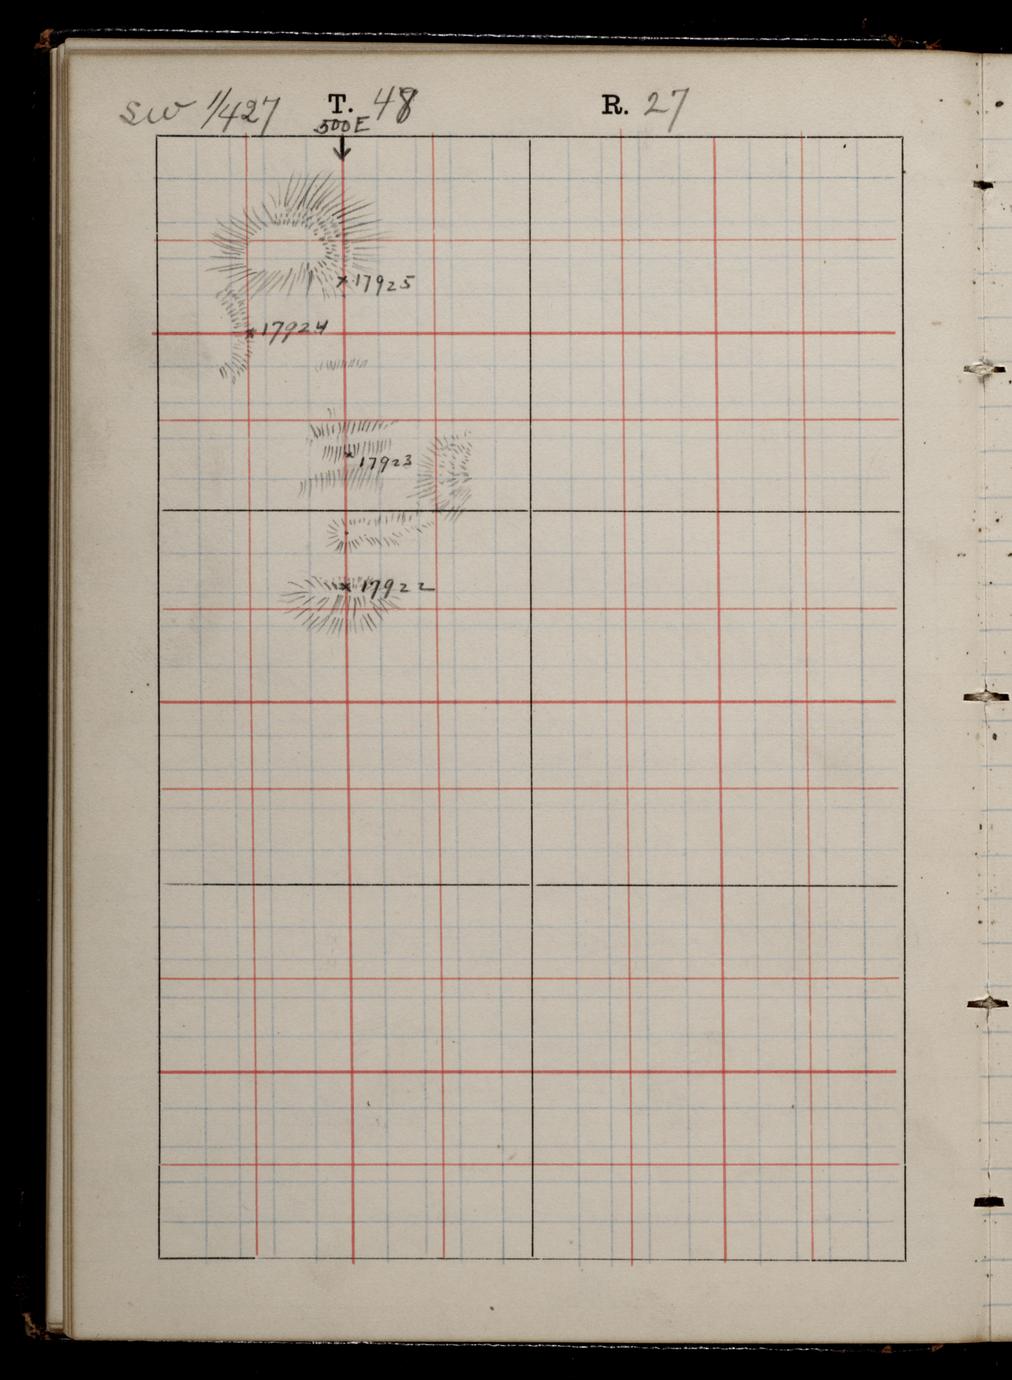 SW 1/4 27 T. 48 R. 27
500E
17925
17924
17923
17922